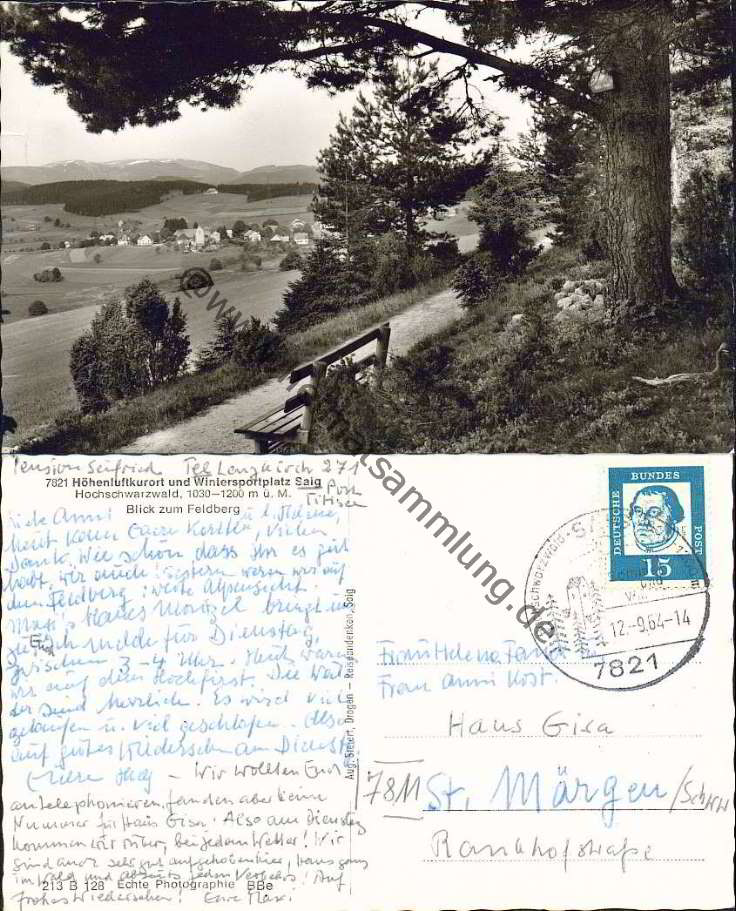 @www.
matsammlung.de
Pension Seifried Tel Lenzkirch 271
7821 Höhenluftkurort und Wintersportplatz Saig
Post
Hochschwarzwald, 1030—1200 m ü. M.
Titisee
Blick zum Feldberg
Liebe Anni! u. l. Helene,
heut kam Eure Karte, vielen
Dank. Wie schön dass ihr es gut
habt, wir auch! Gestern waren wir auf
dem Feldberg: weite Alpensicht!
gleich melde für Dienstag,
zwischen 3-4 Uhr. Heut waren
wir auf dem Hochfirst. Die Wäl-
der sind herrlich. Es wird viel
gelaufen u. viel geschlafen. Also
auf gutes Wiedersehen am Dienst.
– Wir wollten Euch
antelephonieren, fanden aber keine
Nummer für Haus Gisa. Also am Dienstag
kommen wir rüber, bei jedem Wetter! Wir
sind auch sehr gut aufgehoben hier, Haus ganz
im Wald und abseits jeden Verkehrs! Auf
213 B 128 Echte Photographie BBe
frohes Wiedersehen! Eure Maxi
Aug. Siefert, Drogen — Reiseandenken, Saig
DEUTSCHE BUNDES POST
15
Hochschwarzwald
12.-9.64-14
7821
Frau Helene
Frau Anni Kost.
Haus Gisa
7811 St. Märgen/Schww
Rankhofstraße